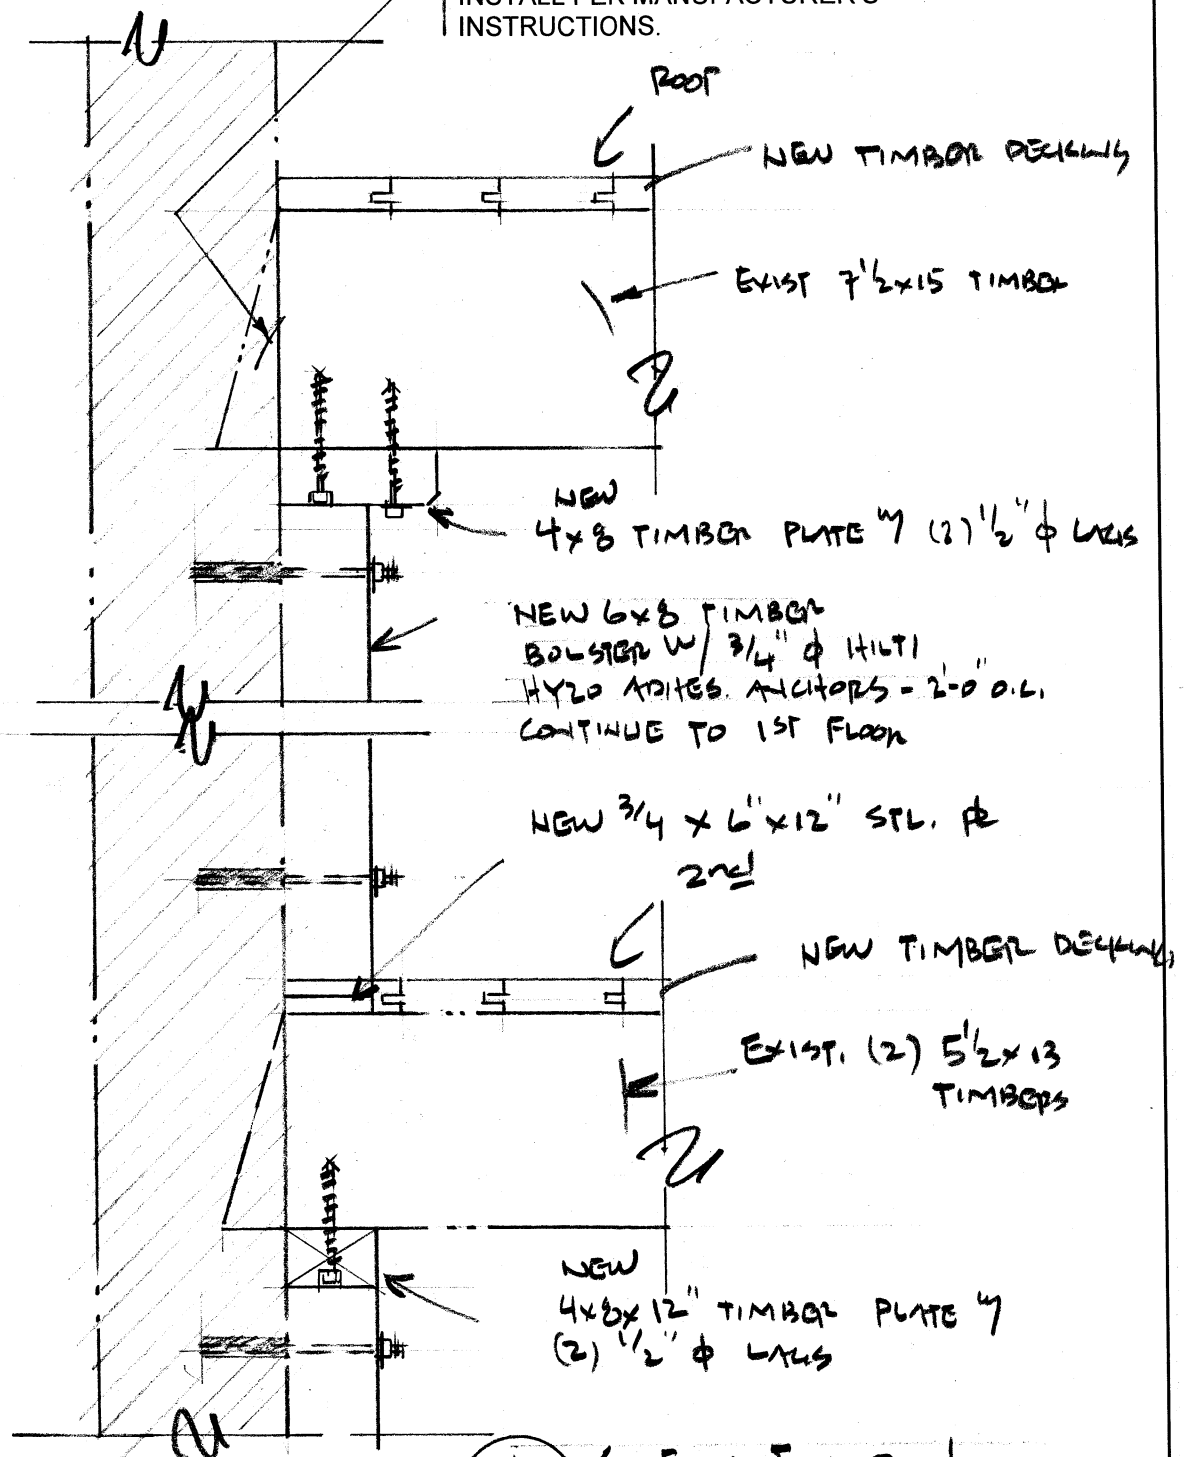 INSTRUCTIONS.
ROOF
NEW TIMBER DECKING
EXIST 7 1/2x15 TIMBER
NEW
4x8 TIMBER PLATE W/ (2) 1/2" φ LAGS
NEW 6x8 TIMBER
BOLSTER W/ 3/4" φ HILTI
HY20 ADHES. ANCHORS - 2'-0" O.C.
CONTINUE TO 1ST FLOOR
NEW 3/4 x 6" x 12" STL. PL
2nd
NEW TIMBER DECKING
EXIST. (2) 5 1/2 x 13
TIMBERS
NEW
4x8x12" TIMBER PLATE W/
(2) 1/2" φ LAGS